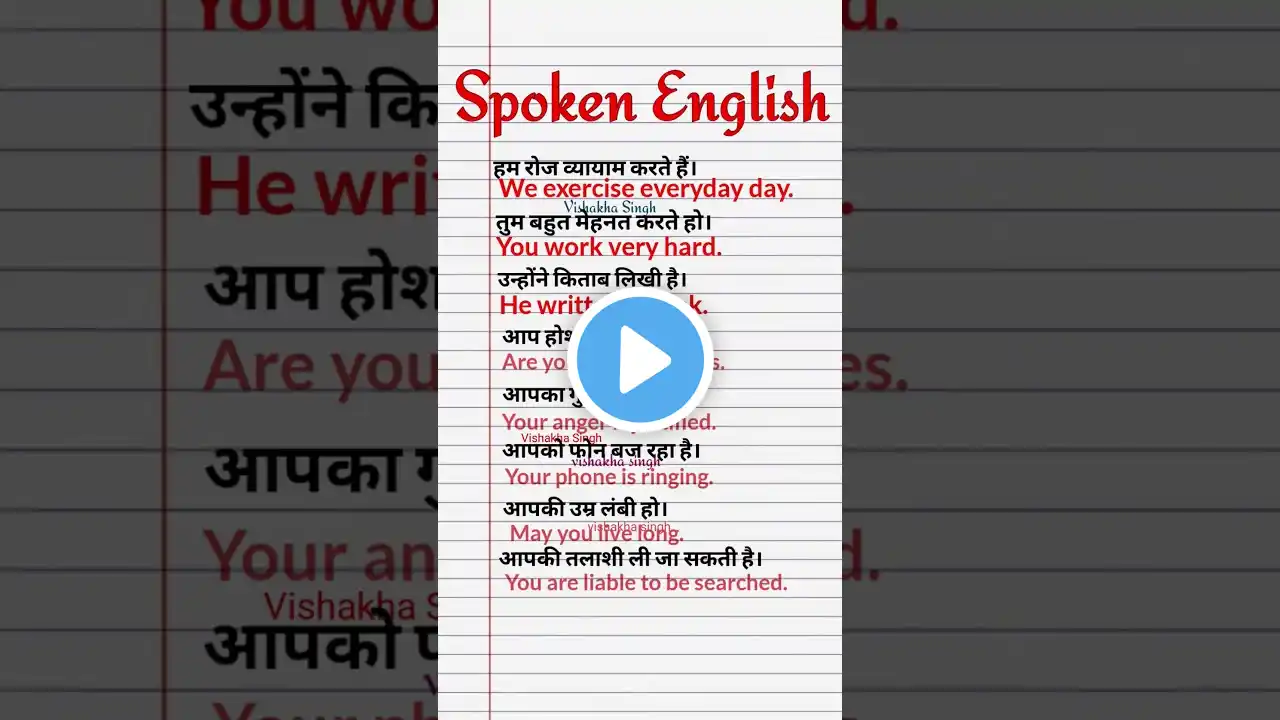 Spoken English
हम रोज व्यायाम करते हैं।
We exercise everyday day.
Vishakha Singh
तुम बहुत मेहनत करते हो।
You work very hard.
उन्होंने किताब लिखी है।
He writt k.
आप होश
Are yo s.
आपका गु
Your anger ied.
Vishakha Singh
आपको फोन बज रहा है।
vishakha singh
Your phone is ringing.
आपकी उम्र लंबी हो।
vishakha singh
May you live long.
आपकी तलाशी ली जा सकती है।
You are liable to be searched.